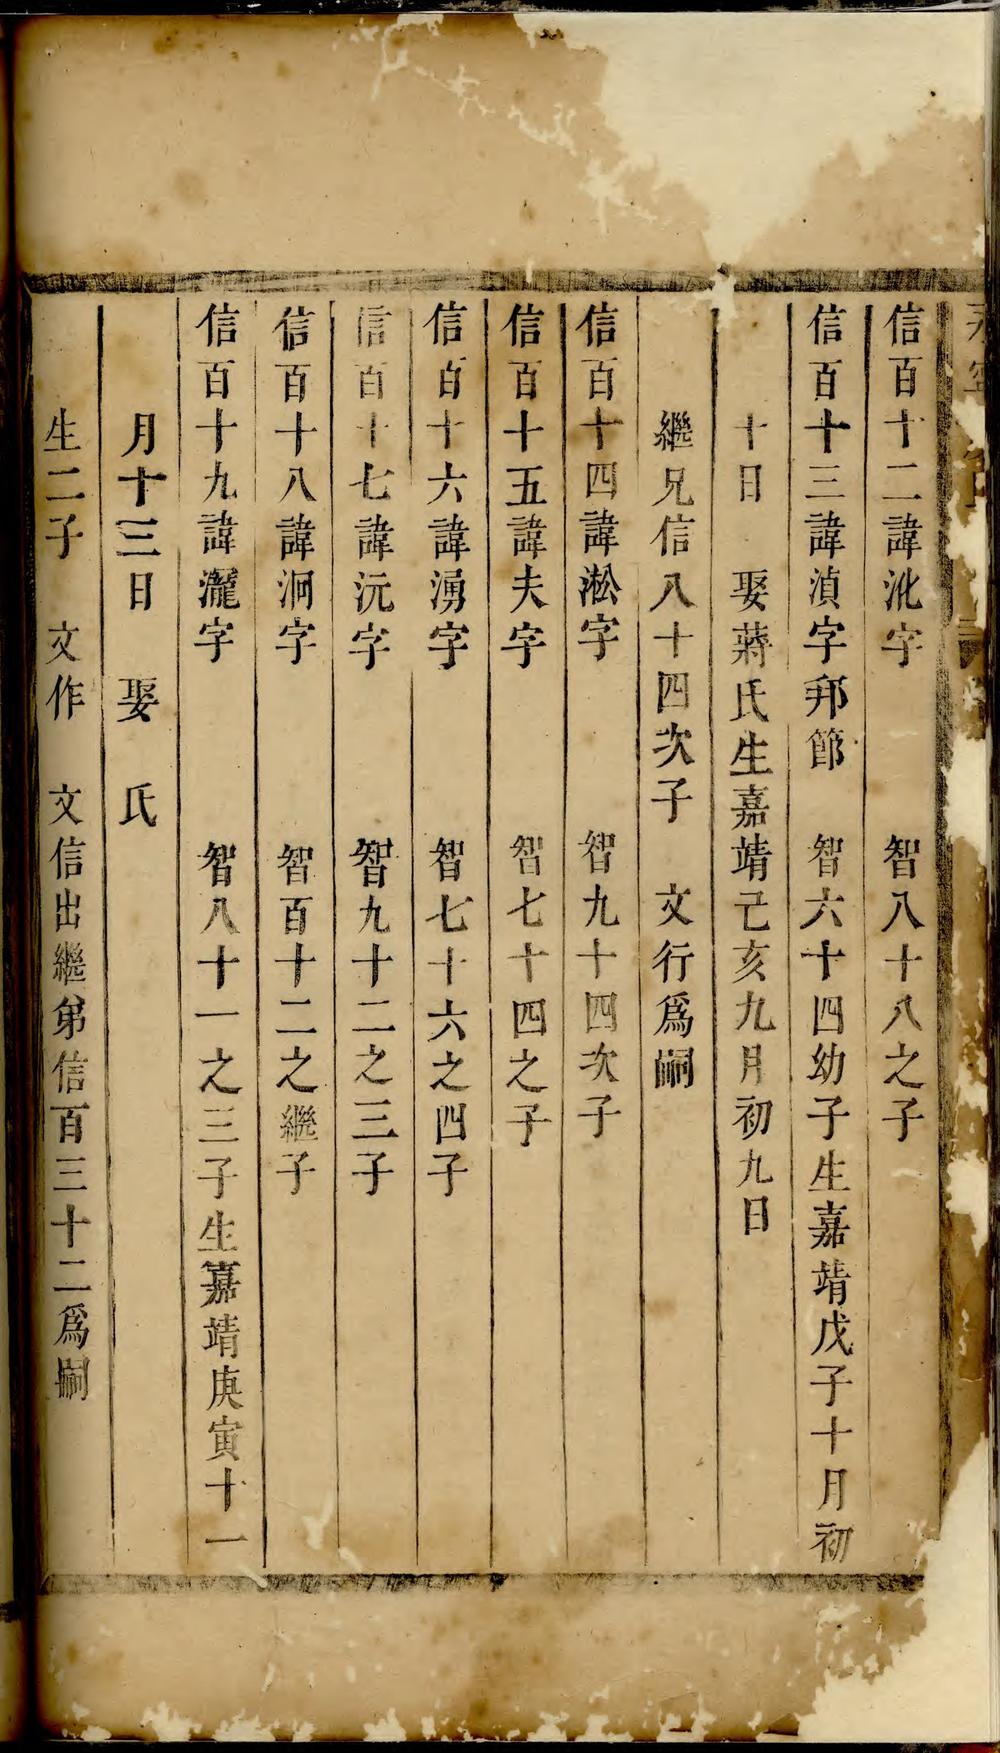 信百十二諱沘字　智八十八之子
信百十三諱湞字邦節　智六十四幼子生嘉靖戊子十月初
十日　娶蔣氏生嘉靖己亥九月初九日
繼兄信八十四次子　文行爲嗣
信百十四諱淞字　智九十四次子
信百十五諱夫字　智七十四之子
信百十六諱湧字　智七十六之四子
信百十七諱沅字　智九十二之三子
信百十八諱泂字　智百十二之繼子
信百十九諱瀧字　智八十一之三子生嘉靖庚寅十一
月十三日　娶　氏
生二子　文作　文信出繼弟信百三十二爲嗣